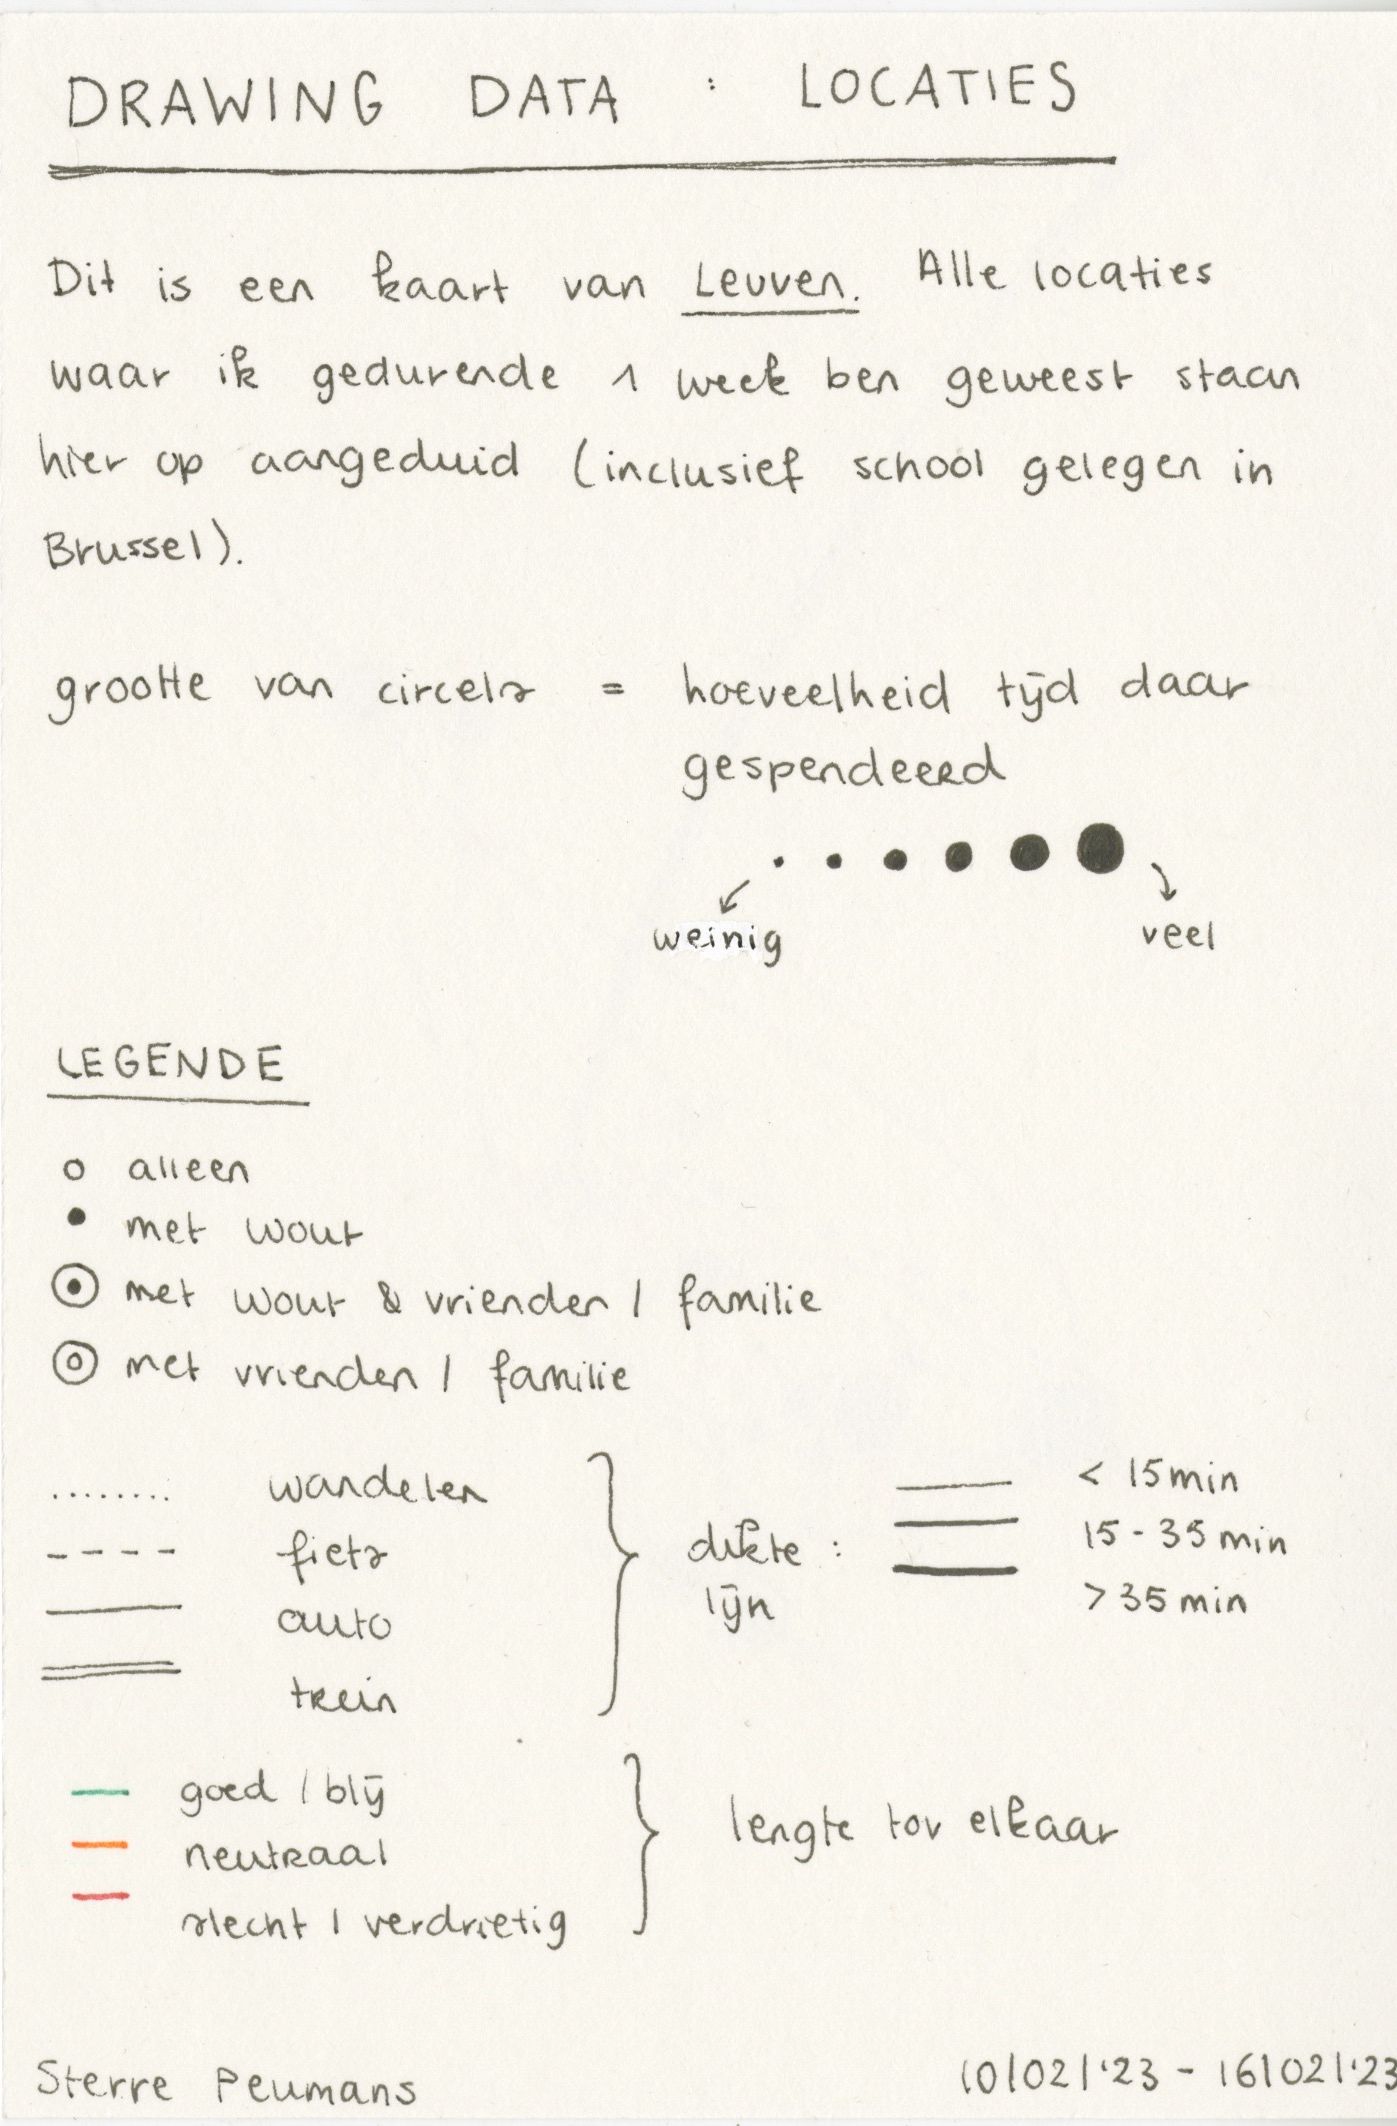 DRAWING DATA : LOCATIES
Dit is een kaart van Leuven. Alle locaties
waar ik gedurende 1 week ben geweest staan
hier op aangeduid (inclusief school gelegen in
Brussel).
grootte van circels = hoeveelheid tijd daar
gespendeerd
weinig veel
LEGENDE
alleen
met wout
met wout & vrienden / familie
met vrienden / familie
wandelen
fiets
auto
trein
dikte :
lijn
< 15 min
15 - 35 min
> 35 min
goed / blij
neutraal
slecht / verdrietig
lengte tov elkaar
Sterre Peumans
10/02/'23 - 16/02/'23